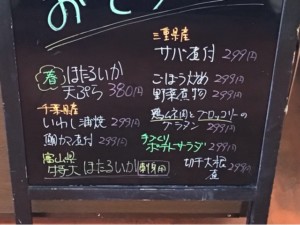 春 ほたるいか
天ぷら 380円
千葉県産
いわし酒焼 299円
鯛カマ煮付 299円
富山県
特大 ほたるいか 刺身用
三重県産
サバ煮付 299円
ごぼう太め 299円
野菜煮物 299円
鶏ムネ肉とブロッコリーの
グラタン 299円
手づくり
ポテトサラダ 299円
切干大根
煮